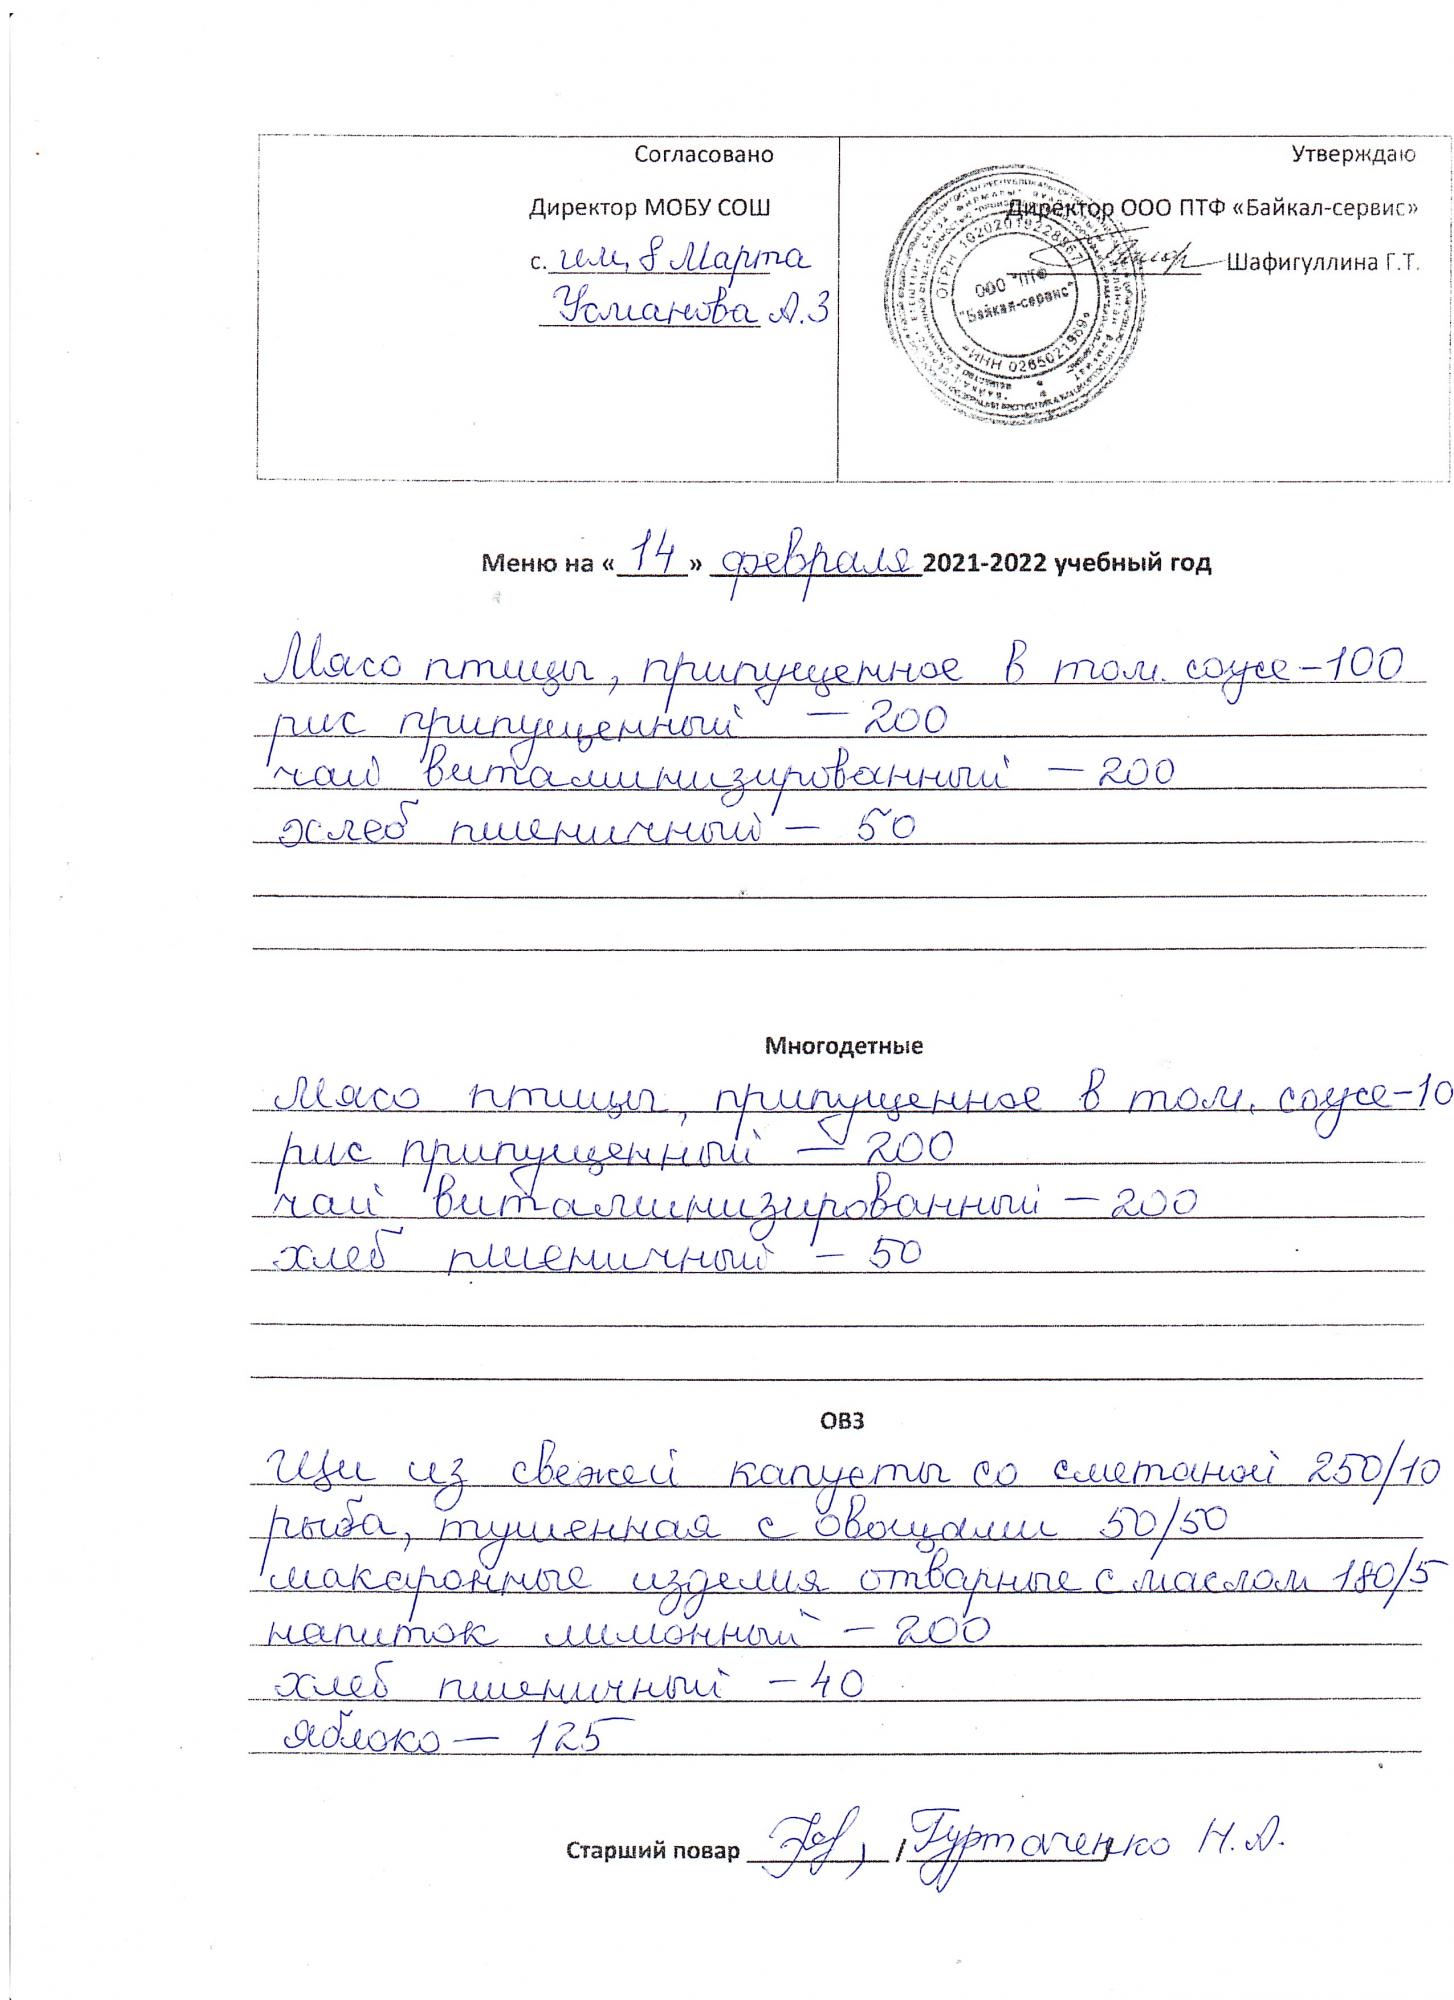 Согласовано
Директор МОБУ СОШ
с. им. 8 Марта
Усманова А.З
Утверждаю
Директор ООО ПТФ «Байкал-сервис»
Шафигуллина Г.Т.
ОГРН
ООО "ПТФ
"Байкал-сервис"
ИНН 0265021969
Меню на « 14 » февраля 2021-2022 учебный год
Мясо птицы, припущенное в том. соусе – 100
рис припущенный – 200
чай витаминизированный – 200
хлеб пшеничный – 50
Многодетные
Мясо птицы, припущенное в том. соусе – 10
рис припущенный – 200
чай витаминизированный – 200
хлеб пшеничный – 50
ОВЗ
Щи из свежей капусты со сметаной 250/10
рыба, тушенная с овощами 50/50
макаронные изделия отварные с маслом 180/5
напиток лимонный – 200
хлеб пшеничный – 40
яблоко – 125
Старший повар / Гуртаченко Н.А.